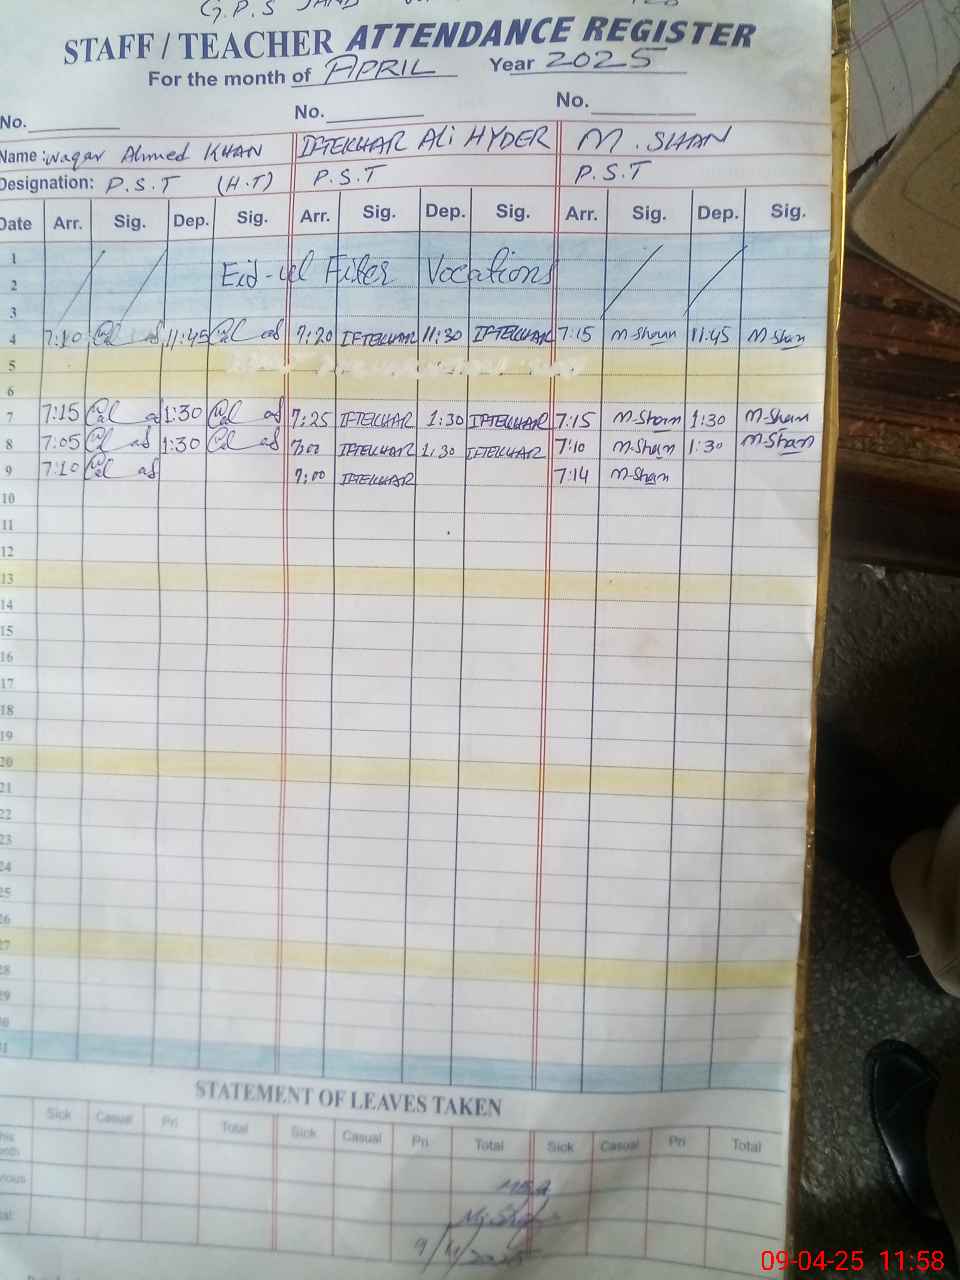 G.P.S JAND
STAFF / TEACHER ATTENDANCE REGISTER
For the month of APRIL Year 2025
No. No. No.
Name: Waqar Ahmed KHAN IFTEKHAR Ali HYDER M. SHAN
Designation: P.S.T (H.T) P.S.T P.S.T
Date Arr. Sig. Dep. Sig. Arr. Sig. Dep. Sig. Arr. Sig. Dep. Sig.
1
2 Eid-ul Fiter Vocations
3
4 7:10 11:45 7:20 IFTEKHAR 11:30 IFTEKHAR 7:15 M-Shan 11:45 M-Shan
5
6
7 7:15 1:30 7:25 IFTEKHAR 1:30 IFTEKHAR 7:15 M-Sham 1:30 M-Sham
8 7:05 1:30 7:00 IFTEKHAR 1:30 IFTEKHAR 7:10 M-Sham 1:30 M-Shan
9 7:10 7:00 IFTEKHAR 7:14 M-Sham
10
11
12
13
14
15
16
17
18
19
20
21
22
23
24
25
26
27
28
29
STATEMENT OF LEAVES TAKEN
Sick Casual Pri Total Sick Casual Pri Total Sick Casual Pri Total
09-04-25 11:58